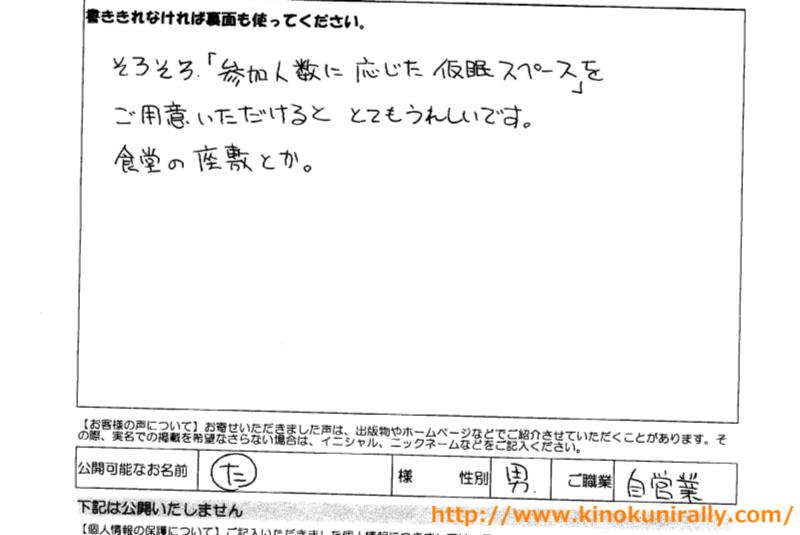 書ききれなければ裏面も使ってください。
そろそろ、「参加人数に 応じた 仮眠スペース」を
ご用意いただけると とてもうれしいです。
食堂の座敷とか。
【お客様の声について】お寄せいただきました声は、出版物やホームページなどでご紹介させていただくことがあります。そ
の際、実名での掲載を希望なさらない場合は、イニシャル、ニックネームなどをご記入ください。
公開可能なお名前 た 様 性別 男. ご職業 自営業
下記は公開いたしません
http://www.kinokunirally.com/
【個人情報の保護について】ご記入いただきました個人情報につきまして